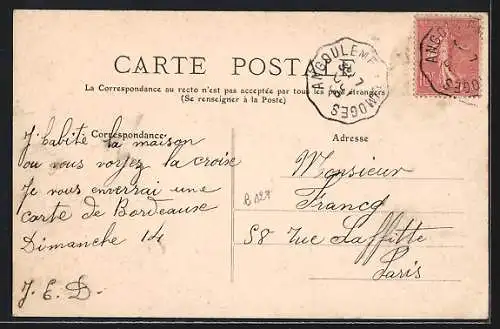 CARTE POSTALE
La Correspondance au recto n'est pas acceptée par tous les pays étrangers
(Se renseigner à la Poste)
ANGOULEME LIMOGES
ANGOU OGES
Correspondance
Adresse
J'habite la maison
ou vous voyez la croise
Je vous enverrai une
carte de Bordeause
Dimanche 14
J. E. D.
Monsieur
Francq
58 rue Laffitte
Paris